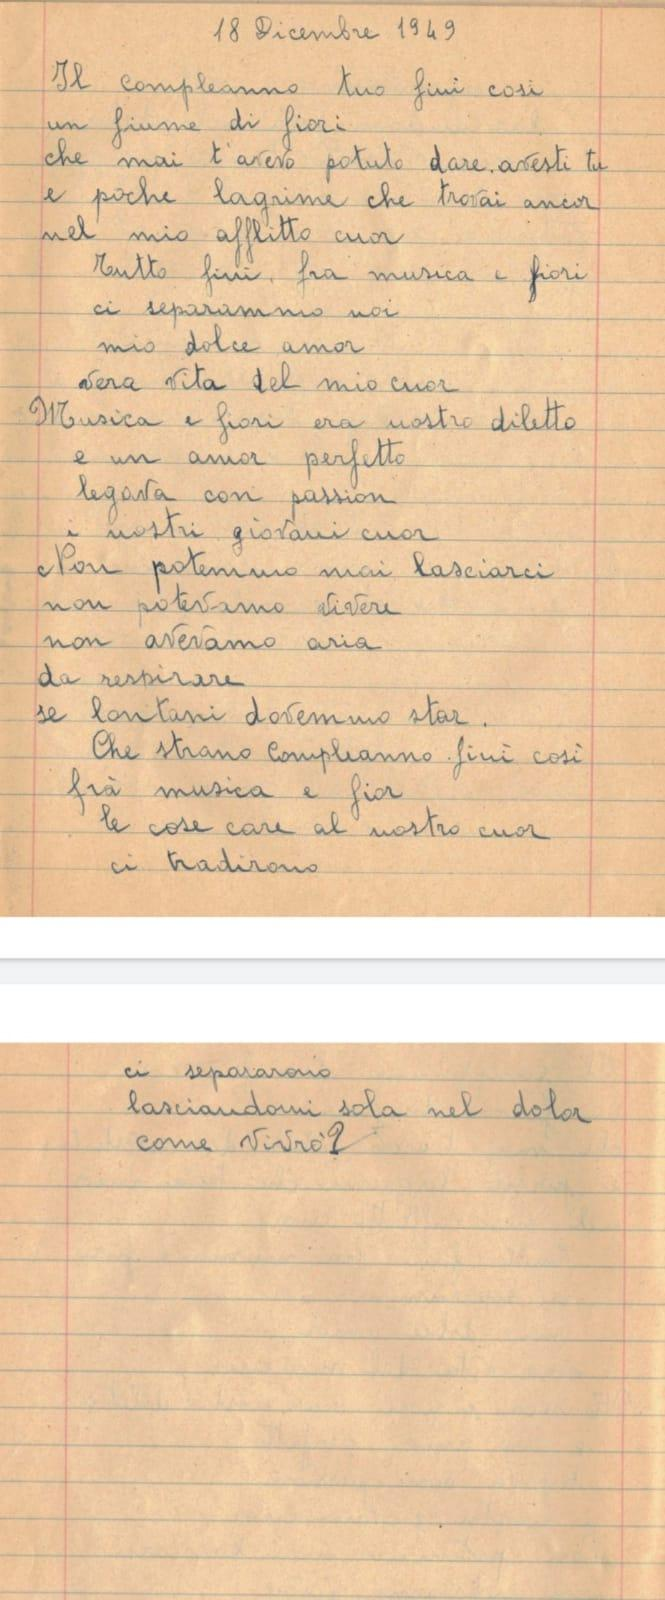 18 Dicembre 1949
Il compleanno tuo finì così
un fiume di fiori
che mai t'avevo potuto dare, avesti tu
e poche lagrime che trovai ancor
nel mio afflitto cuor
Tutto finì, fra musica e fiori
ci separammo noi
mio dolce amor
vera vita del mio cuor
Musica e fiori era nostro diletto
e un amor perfetto
legava con passion
i nostri giovani cuor
Non potemmo mai lasciarci
non potevamo vivere
non avevamo aria
da respirare
se lontani dovemmo star.
Che strano compleanno finì così
frà musica e fior
le cose care al nostro cuor
ci tradirono
ci separarono
lasciandomi sola nel dolor
come vivrò?